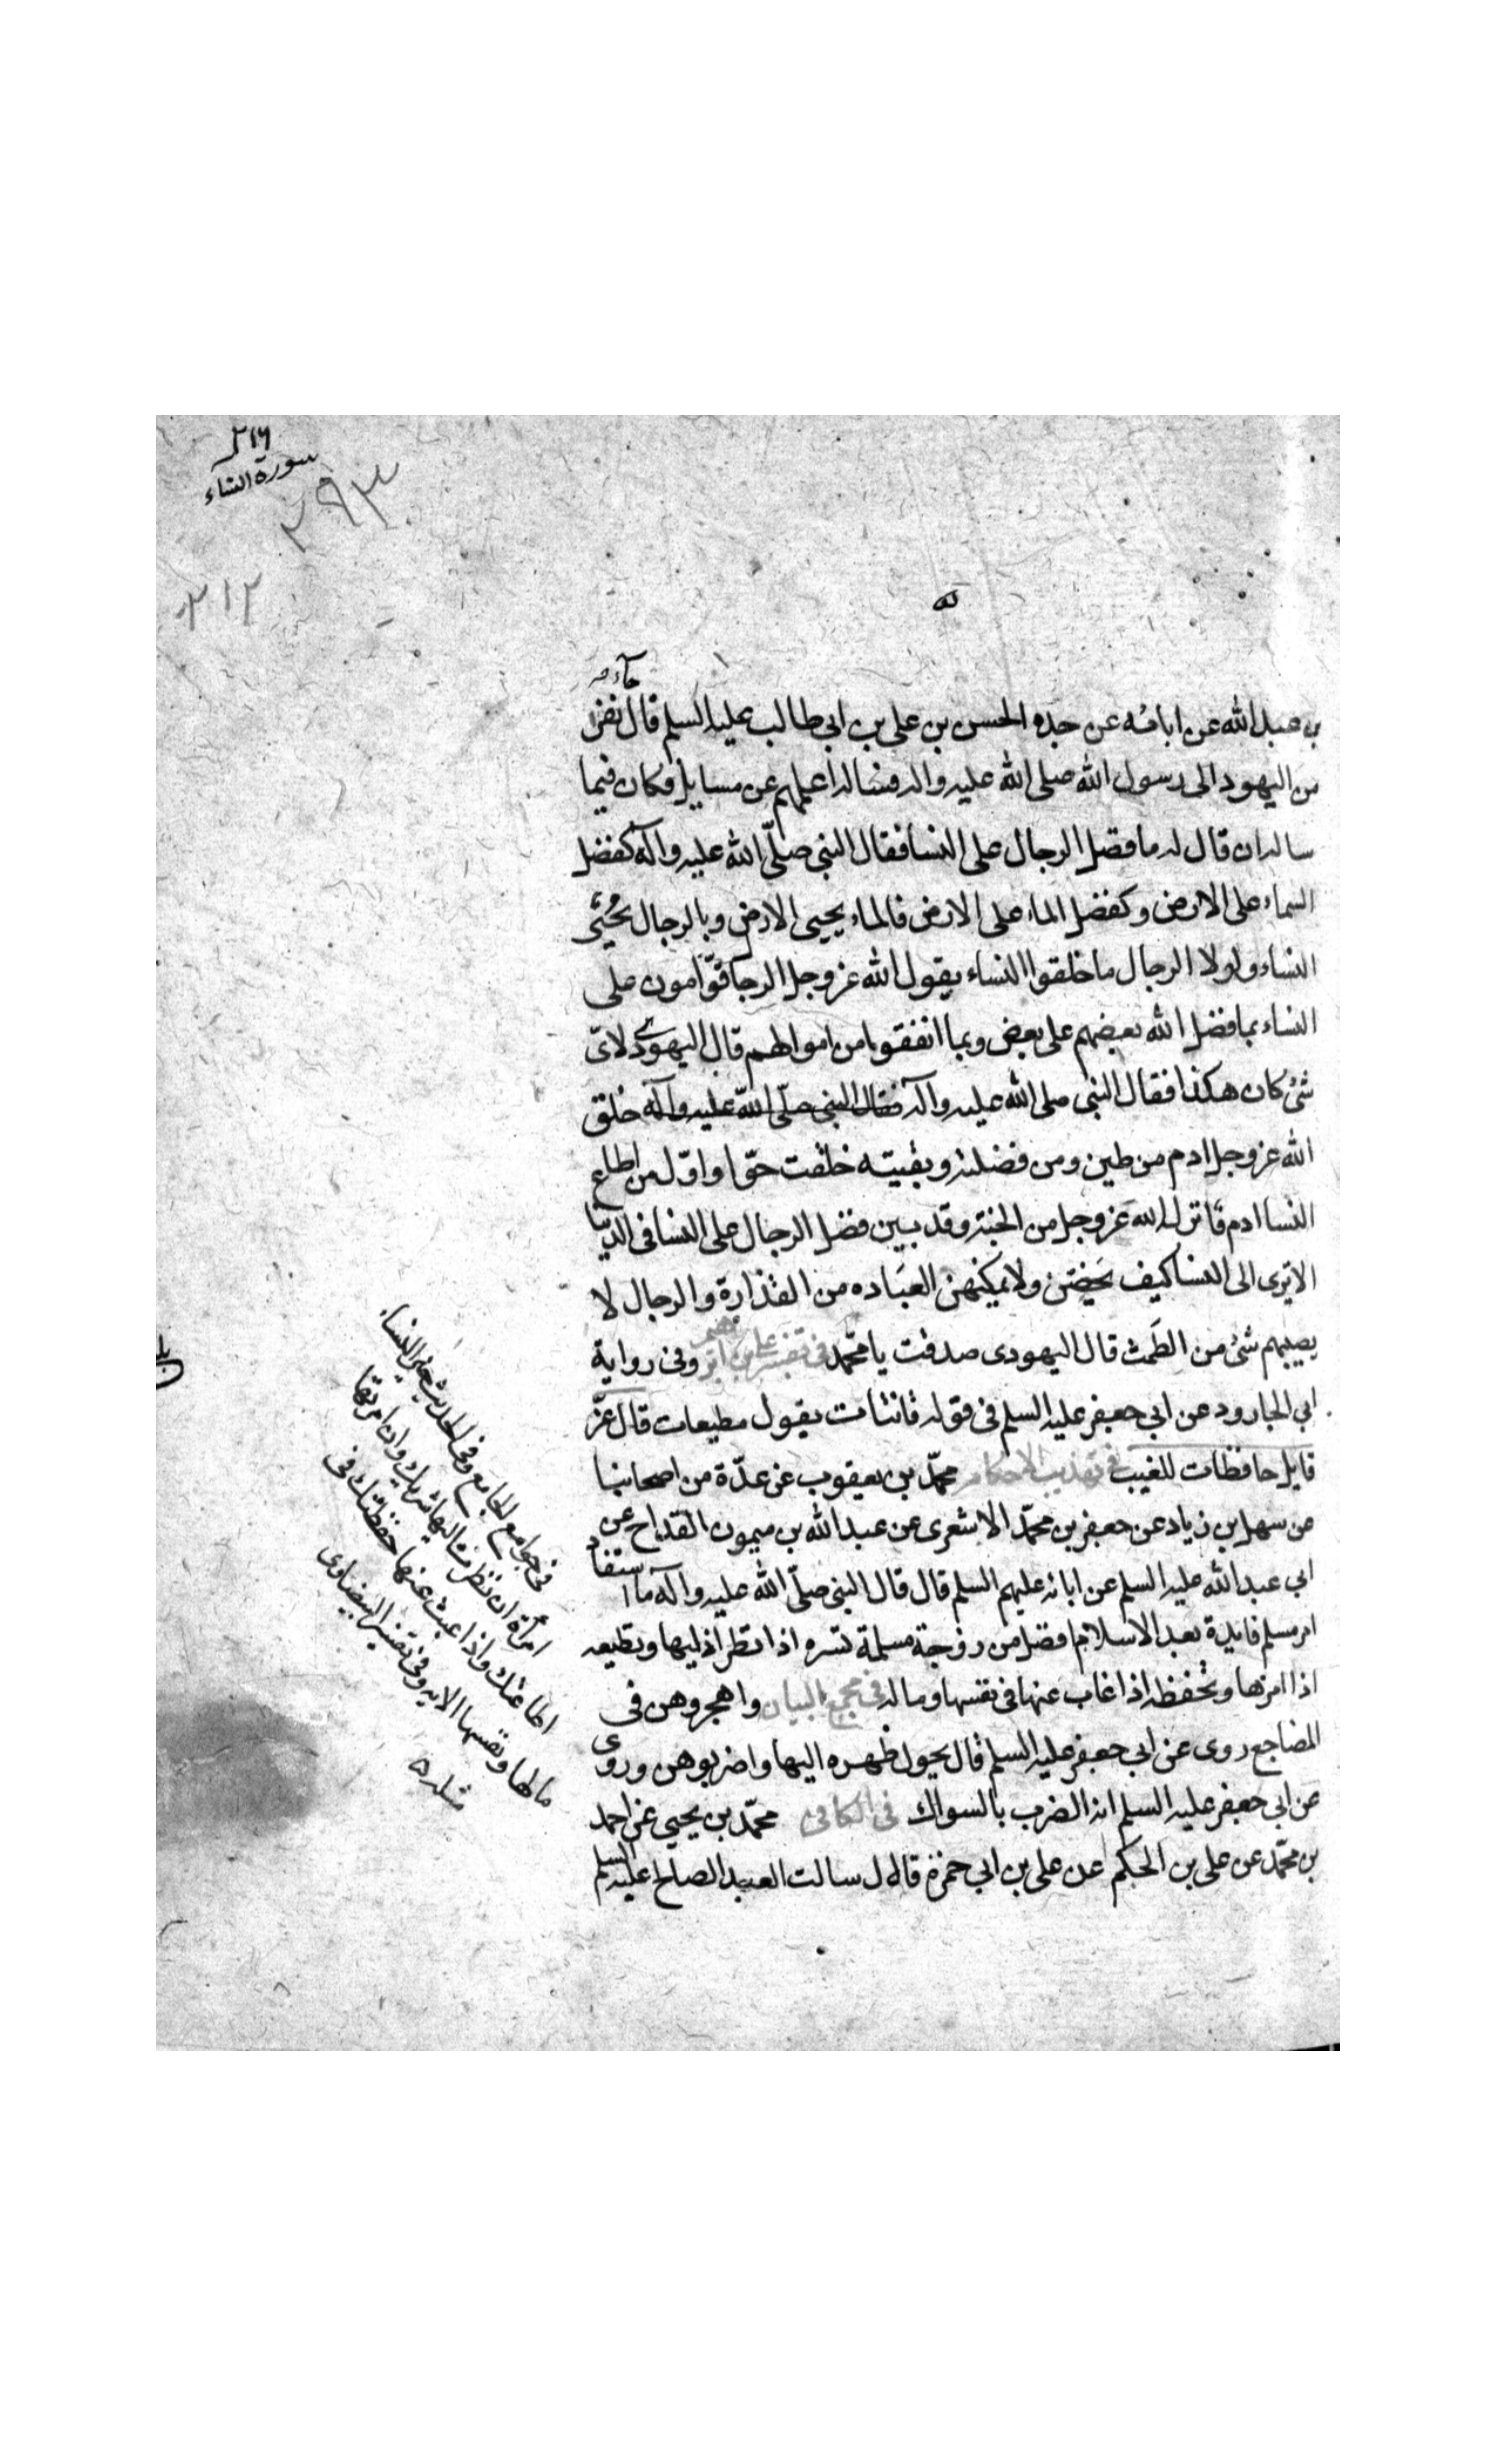 ٢١٦
سورة النساء
٢٩٣
٢١٢
جآء
بن عبدالله عن ابائه عن جده الحسن بن علی بن ابی طالب علیه السلم قال نفر
من الیهود الی رسول الله صلی الله علیه واله فساله اعلمهم عن مسایل فکان فیما
ساله ان قال له ما فضل الرجال علی النسا فقال النبی صلّی الله علیه وآله کفضل
السماء علی الارض وکفضل الماء علی الارض فالماء یحیی الارض وبالرجال یحیی
النساء ولولا الرجال ما خلقوا النساء یقول الله عز وجل الرجا قوّامون علی
النساء بما فضل الله بعضهم علی بعض وبما انفقوا من اموالهم قال الیهودی لایّ
شئ کان هکذا فقال النبی صلی الله علیه وآله فقال النبی صلّی الله علیه وآله خلق
الله عز وجل ادم من طین ومن فضلته وبقیته خلقت حوّا واوّل من اطاع
النسا ادم فانزله الله عز وجل من الجنة وقد بین فضل الرجال علی النسا فی الدنیا
الا تری الی النسا کیف یحیضن ولا یمکنهن العباده من القذارة والرجال لا
یصیبهم شئ من الطمث قال الیهودی صدقت یا محمّد فی تفسیر علی بن ابرهیم وفی روایة
ابی الجارود عن ابی جعفر علیه السلم فی قوله قانتات یقول مطیعات قال عزّ
قایل حافظات للغیب فی تهذیب الاحکام محمّد بن یعقوب عن عدّة من اصحابنا
عن سهل بن زیاد عن جعفر بن محمّد الاشعری عن عبد الله بن میمون القدّاح عن
ابی عبد الله علیه السلم عن ابائه علیهم السلم قال قال النبی صلّی الله علیه وآله ما استفاد
امر مسلم فایدة بعد الاسلام افضل من زوجة مسلمة تسره اذا نظر الیها وتطیعه
اذا امرها وتحفظه اذا غاب عنها فی نفسها وماله فی مجمع البیان واهجروهن فی
المضاجع روی عن ابی جعفر علیه السلم قال یحول ظهره الیها واضربوهن وروی
عن ابی جعفر علیه السلم انه الضرب بالسواك فی الکافی محمّد بن یحیی عن احمد
بن محمّد عن علی بن الحکم عن علی بن ابی حمزة قال سالت العبد الصالح علیه السلم
فی جوامع الجامع وفی الحدیث خیر النساء
امرأة ان نظرت الیها سرتك وان امرتها
اطاعتك واذا غبت عنها حفظتك فی
مالها ونفسها الایه وفی تفسیر البیضاوی
مثله